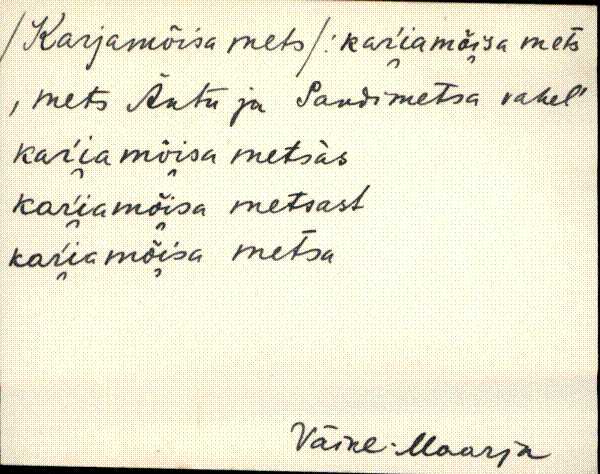 /Karjamõisa mets/: kaŕi̯amõi̯sa mets
, mets Äntu ja Sandimetsa vahel'
kaŕi̯amõi̯sa metsàs
kaŕi̯amõi̯sa metsast
kaŕi̯amõi̯sa metsa
Väike-Maarja